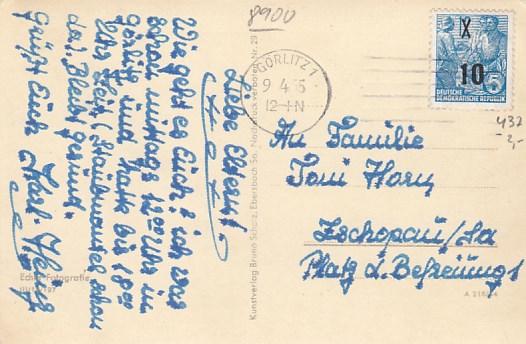 8900
GÖRLITZ 1
9.4.55
12-1N
X
10
5
DEUTSCHE
DEMOKRATISCHE REPUBLIK
432
2,-
Liebe Eltern!
Wie geht es Euch? ich war
schon mittags 12 00 Uhr in
Görlitz und Hank bis 18 00
Uhr Zeit. schon
das. Bleibt gesund.
Grüßt Euch Karl-Heinz
An Familie
Toni Horn
Zschopau/Sa
Platz d. Befreiung 1
Echte Fotografie
Kunstverlag Bruno Scholz, Ebersbach Sa. Nachdruck verboten Nr. 29